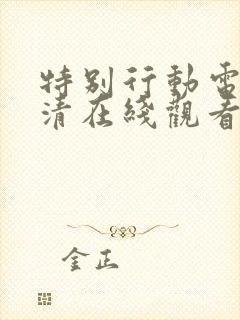 特别行動電
清在綫觀看
金正